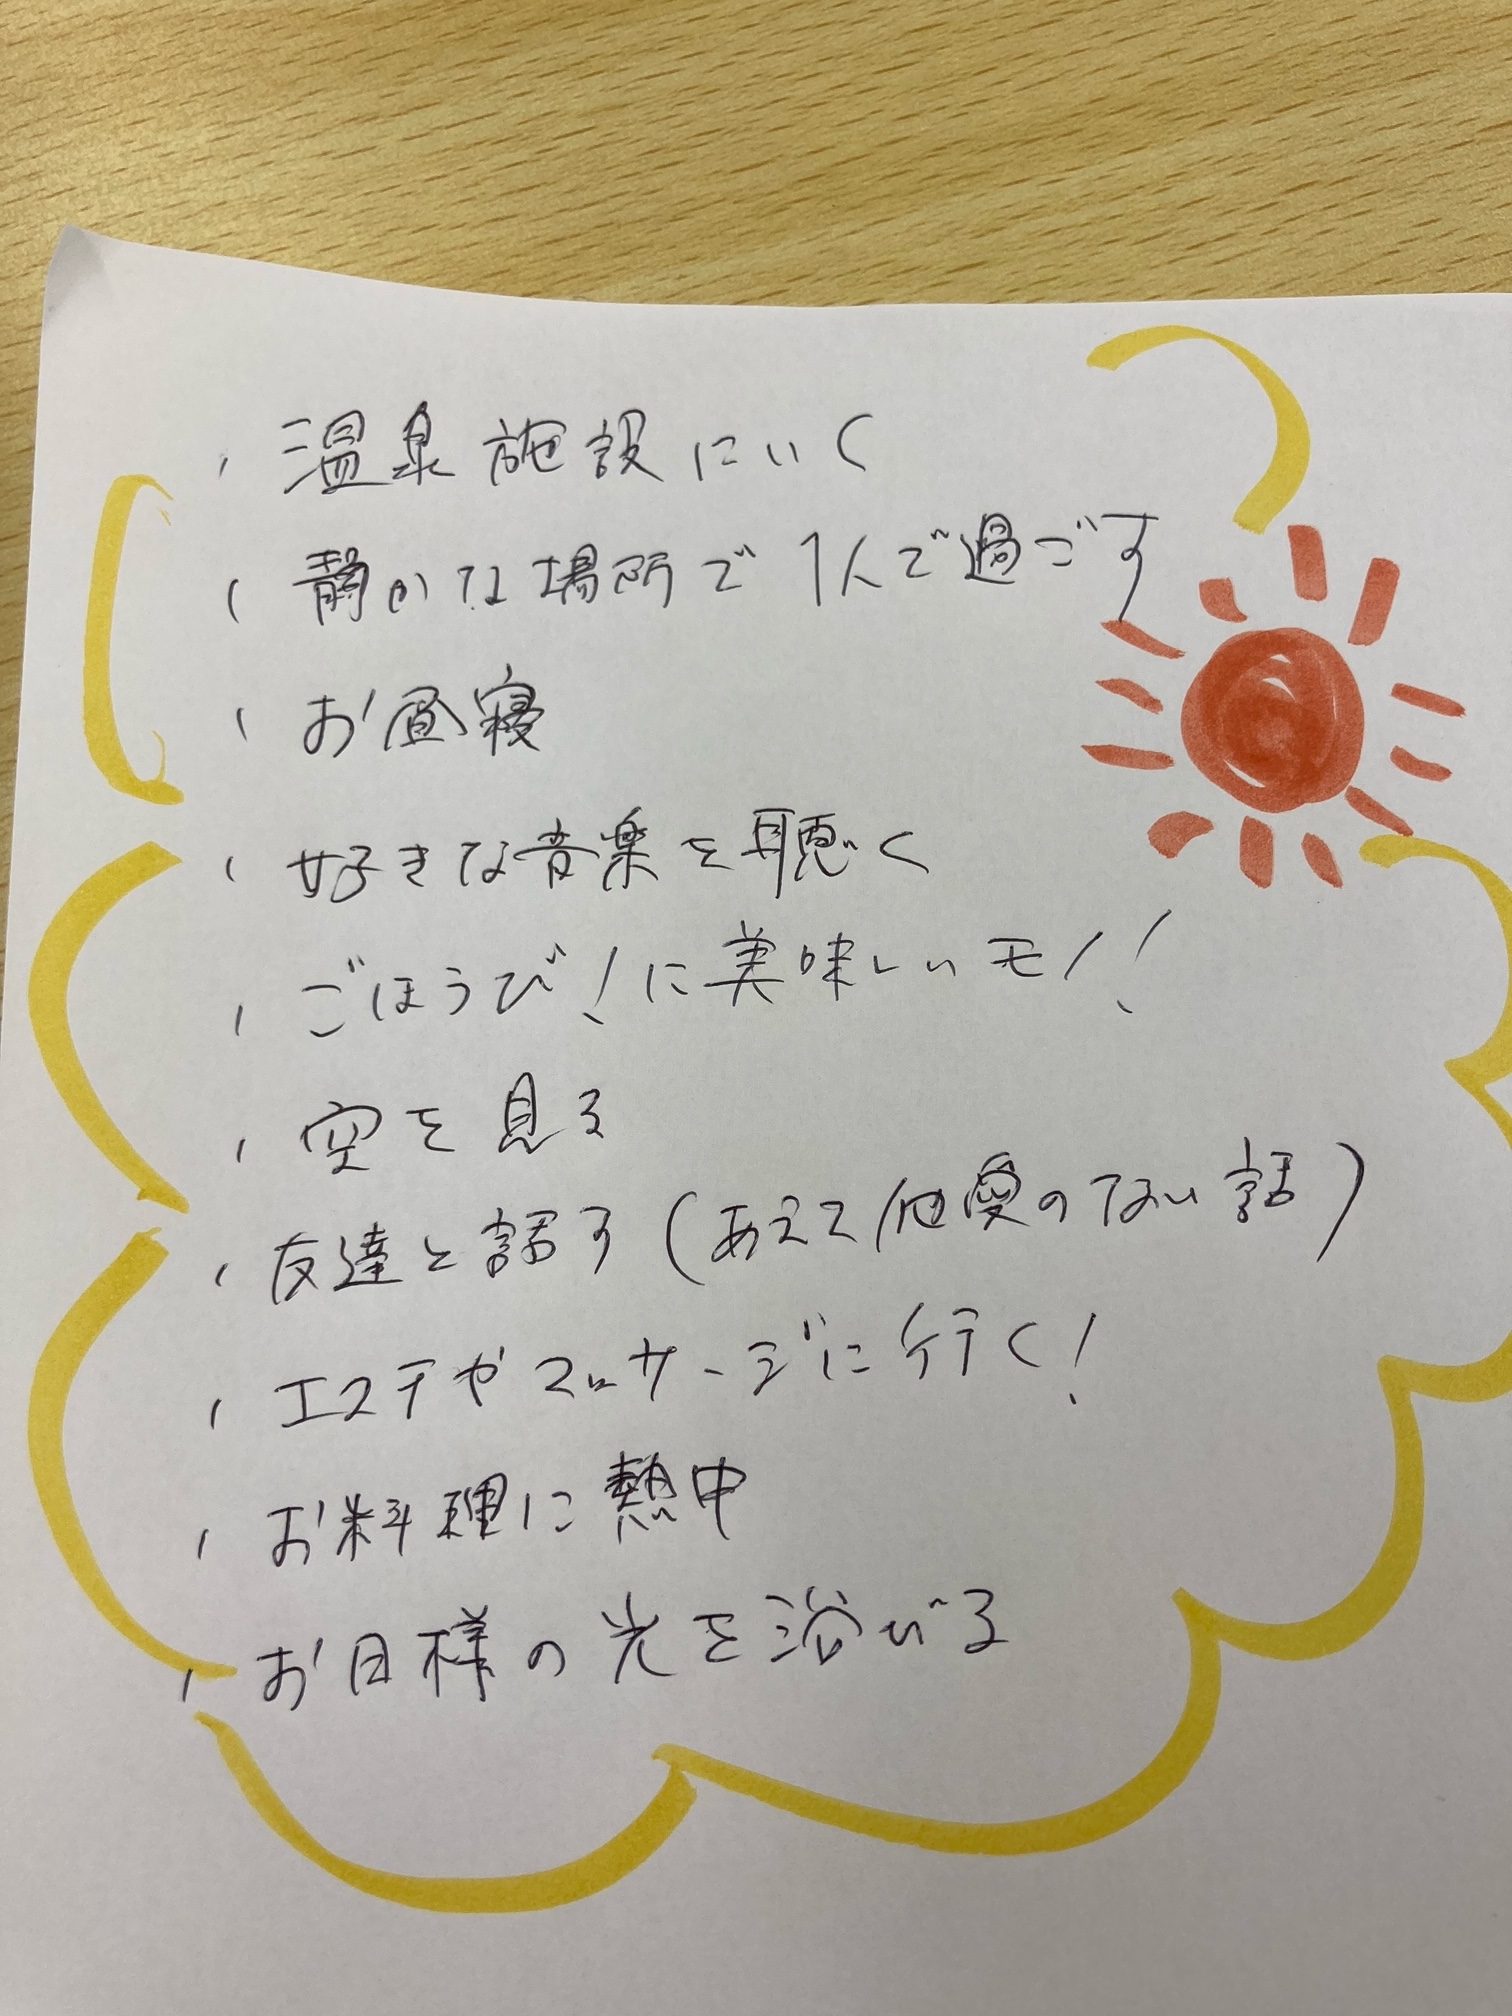 ・温泉施設にいく
・静かな場所で1人で過ごす
・お昼寝
・好きな音楽を聴く
・ごほうび!に美味しいモノ!
・空を見る
・友達と話す(あえて他愛のない話)
・エステやマッサージに行く!
・お料理に熱中
・お日様の光を浴びる